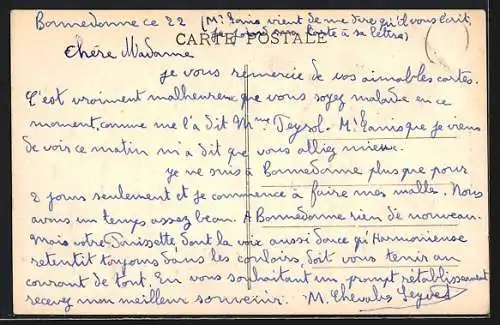 Bonnedonne ce 22 (Mr Janis, vient de me dire qu'il vous écrit,
je joins ma carte à sa lettre)
CARTE POSTALE
Chère Madame
je vous remercie de vos aimables cartes.
C'est vraiment malheureux que vous soyez malade en ce
moment, comme me l'a dit Mme Teyrol. Mr Janis que je viens
de voir ce matin m'a dit que vous alliez mieux.
je ne suis à Bonnedonne plus que pour
2 jours seulement et je commence à faire mes malle. Nous
avons un temps assez beau. A Bonnedonne rien de nouveau.
Mais votre dont la voix aussi douce qu'Harmonieuse
retentit toujours dans les couloirs, doit vous tenir au
courant de tout. En vous souhaitant un prompt rétablissement
recevez mon meilleur souvenir. M. Chevalis